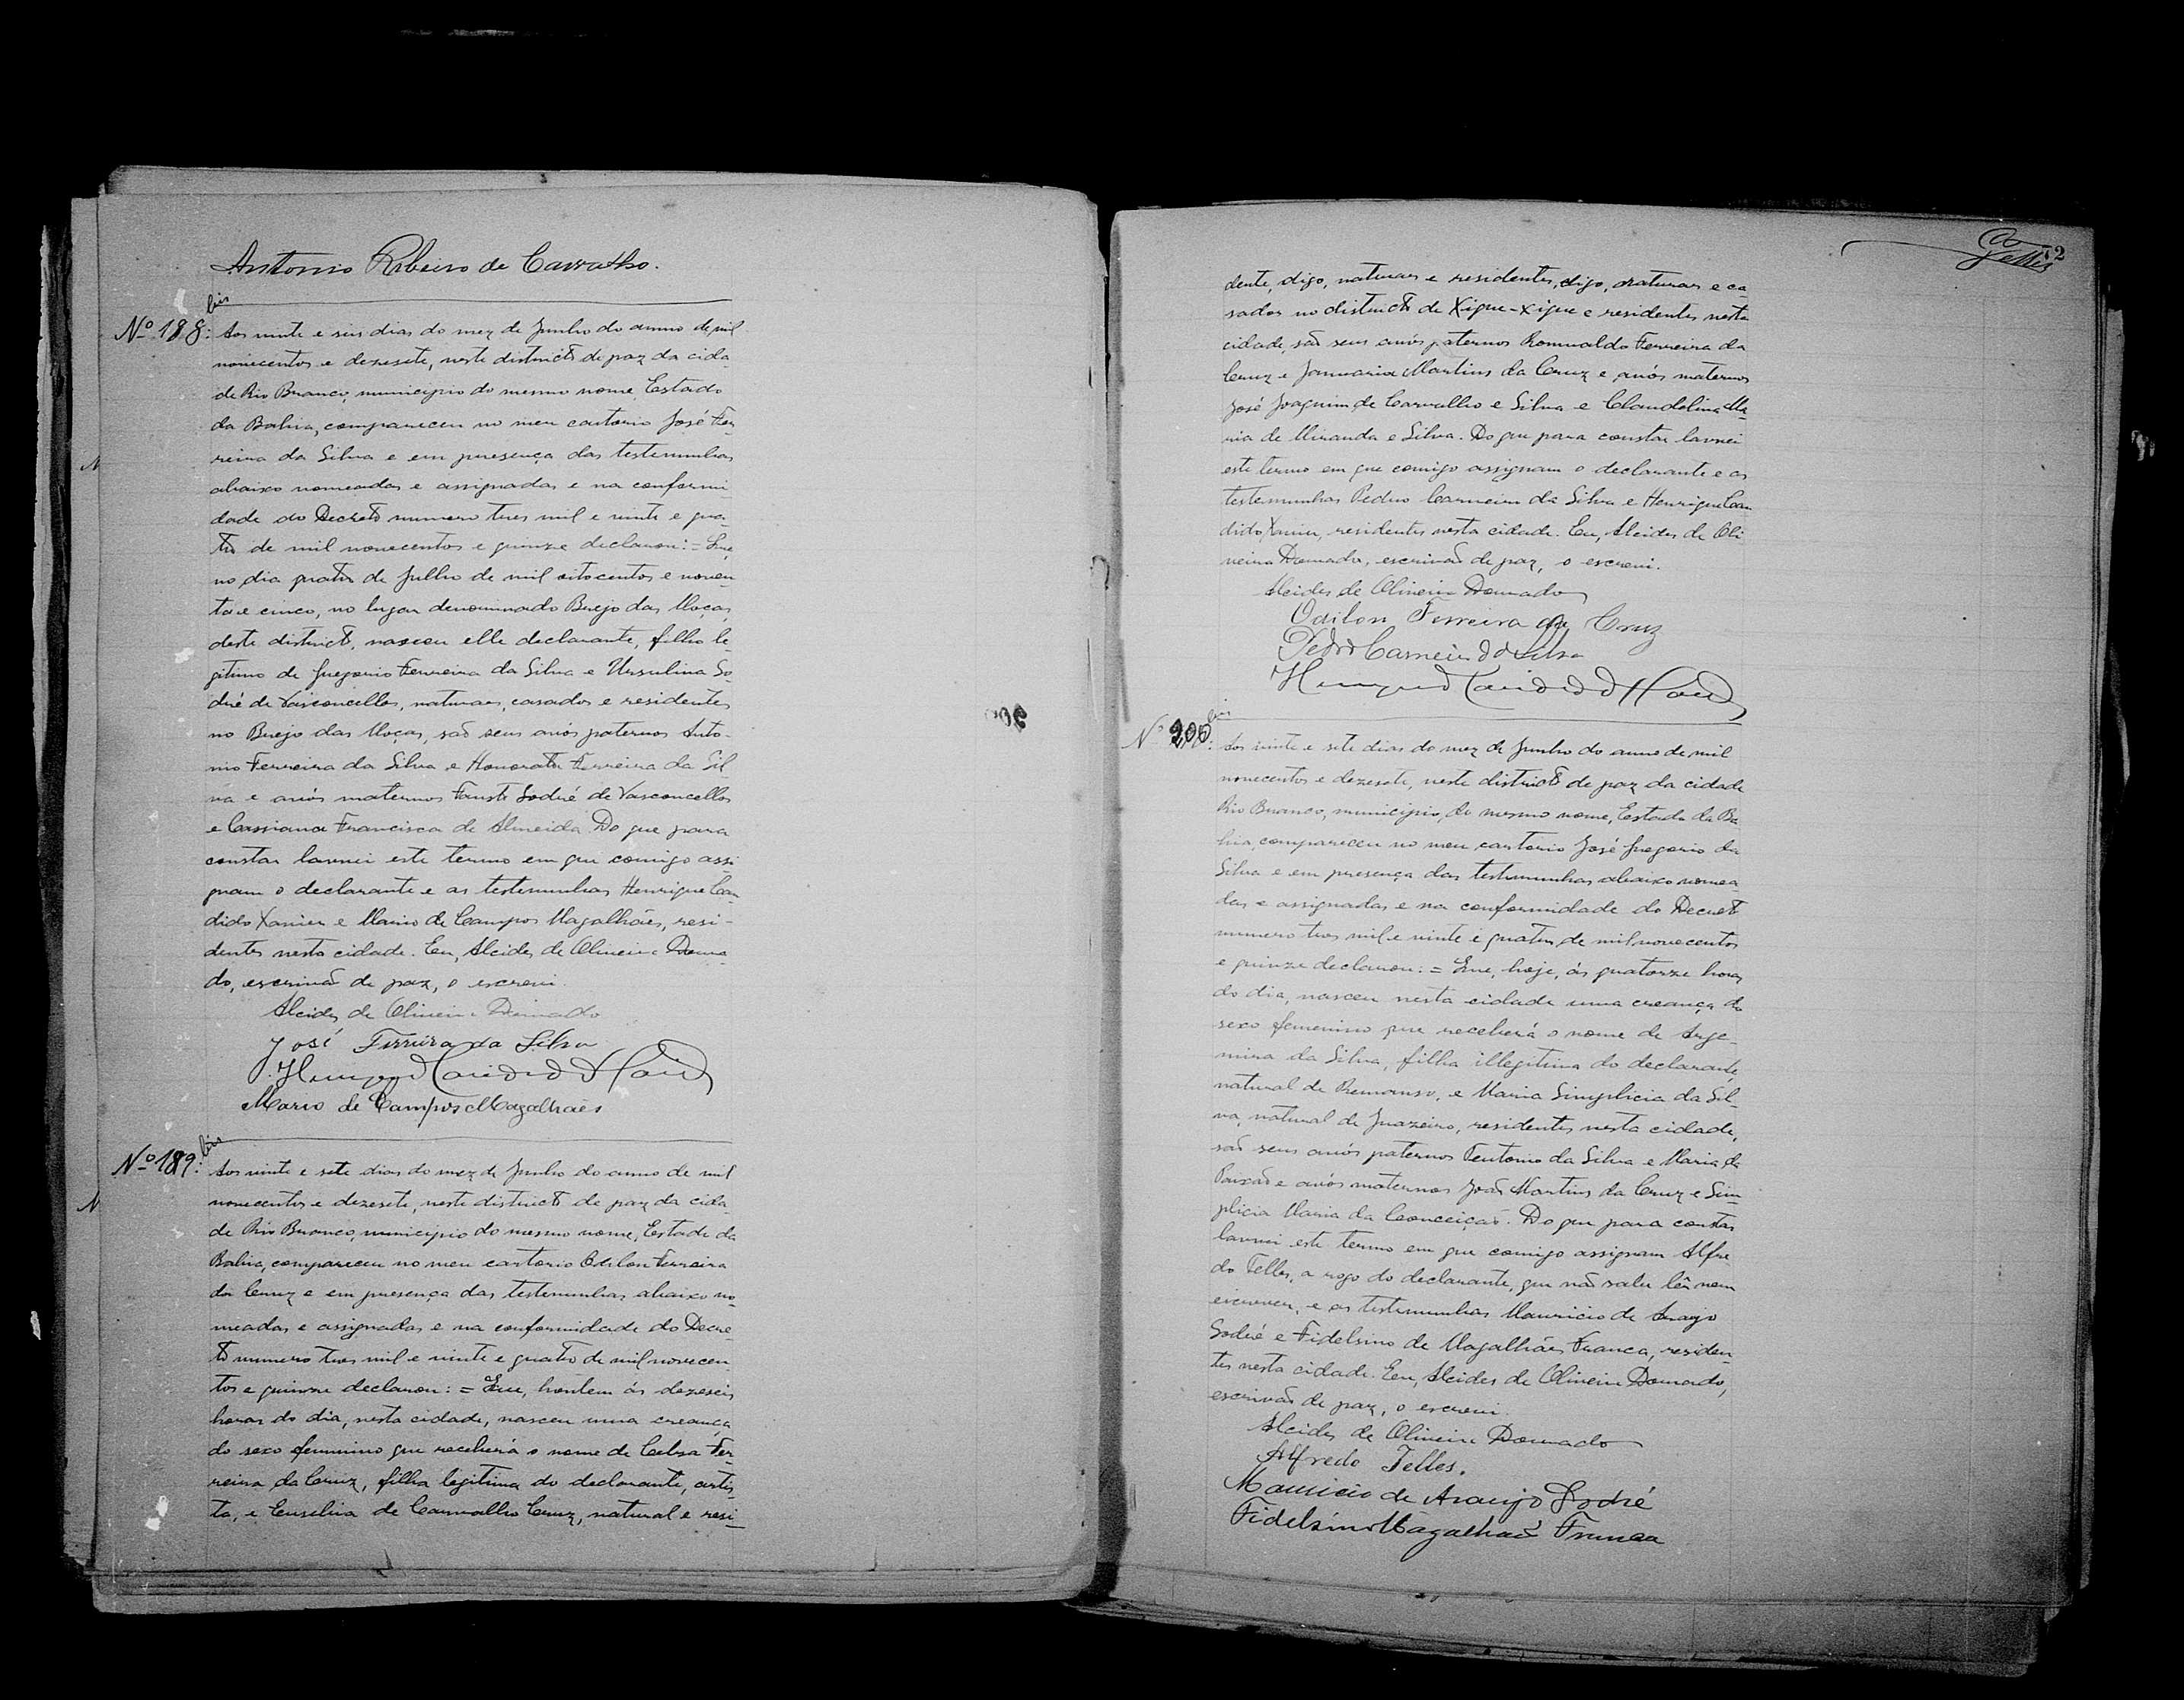 Antonio Ribeiro de Carvalho.
bis
Nº 188: Aos vinte e seis dias do mez de Junho do anno de mil
novecentos e dezesete, neste districto de paz da cida-
de Rio Branco, municipio do mesmo nome, Estado
da Bahia, compareceu no meu cartorio José Fer-
reira da Silva e em presença das testemunhas
abaixo nomeadas e assignadas e na conformi
dade do Decreto numero tres mil e vinte e qua-
tro de mil novecentos e quinze declarou: = Que,
no dia quatro de Julho de mil oitocentos e noven-
ta e cinco, no lugar denominado Brejo das Moças,
deste districto, nasceu elle declarante, filho le-
gitimo de Gregorio Ferreira da Silva e Ursulina So-
dré de Vasconcellos, naturaes, casados e residentes
no Brejo das Moças, são seus avós paternos Anto-
nio Ferreira da Silva e Honorata Ferreira da Sil-
va e avós maternos Fausto Sodré de Vasconcellos
e Cassiana Francisca de Almeida. Do que para
constar lavrei este termo em que comigo assi
gnam o declarante e as testemunhas Henrique Can-
dido Xavier e Mario de Campos Magalhães, resi-
dentes nesta cidade. Eu, Alcides de Oliveira Doura-
do, escrivão de paz, o escrevi.
Alcides de Oliveira Dourado
José Ferreira da Silva
Henrique Candido Xavier
Mario de Campos Magalhães
bis
Nº 189: Aos vinte e sete dias do mez de Junho do anno de mil
novecentos e dezesete, neste districto de paz da cida-
de Rio Branco, municipio do mesmo nome, Estado da
Bahia, compareceu no meu cartorio Odilon Ferreira
da Cruz e em presença das testemunhas abaixo no-
meadas e assignadas e na conformidade do Decre-
to numero tres mil e vinte e quatro de mil novecen
tos e quinze declarou: = Que, hontem ás dezeseis
horas do dia, nesta cidade, nasceu uma creança
do sexo feminino que receberá o nome de Celsa Fer-
reira da Cruz, filha legitima do declarante, artis-
ta, e de Carvalho Cruz, natural e resi-
72
Telles
dente, digo, naturaes e residentes, digo, naturaes e ca-
sados no districto de Xique-Xique e residentes nesta
cidade, são seus avós paternos Romualdo Ferreira da
Cruz e Januaria Martins da Cruz e avós maternos
José Joaquim de Carvalho e Silva e Claudolina Ma-
ria de Miranda e Silva. Do que para constar lavrei
este termo em que comigo assignam o declarante e as
testemunhas Pedro Carneiro da Silva e Henrique Can
dido Xavier, residentes nesta cidade. Eu, Alcides de Oli
veira Dourado, escrivão de paz, o escrevi.
Alcides de Oliveira Dourado
Odilon Ferreira da Cruz
Pedro Carneiro da Silva
Henrique Candido Xavier
bis
Nº 200: Aos vinte e sete dias do mez de Junho do anno de mil
novecentos e dezesete, neste districto de paz da cidade
Rio Branco, municipio, do mesmo nome, Estado da Ba-
hia, compareceu no meu cartorio José Gregorio da
Silva e em presença das testemunhas abaixo nomea-
das e assignadas e na conformidade do Decreto
numero tres mil e vinte e quatro, de mil novecentos
e quinze declarou: = Que, hoje, ás quatorze horas
do dia, nasceu nesta cidade uma creança do
sexo femenino que receberá o nome de Arge-
mira da Silva, filha illegitima do declarante,
natural de Remanso, e Maria Simplicia da Sil-
va, natural de Juazeiro, residentes nesta cidade,
são seus avós paternos Teutonio da Silva e Maria da
Paixão e avós maternos João Martins da Cruz e Sim-
plicia Maria da Conceição. Do que para constar
lavrei este termo em que comigo assignam Alfre
do Telles, a rogo do declarante, que não sabe lêr nem
escrever, e as testemunhas Mauricio de Araujo
Sodré e Fidelsino de Magalhães Franca, residen-
tes nesta cidade. Eu, Alcides de Oliveira Dourado,
escrivão de paz, o escrevi.
Alcides de Oliveira Dourado
Alfredo Telles.
Mauricio de Araujo Sodré
Fidelsino Magalhães Franca